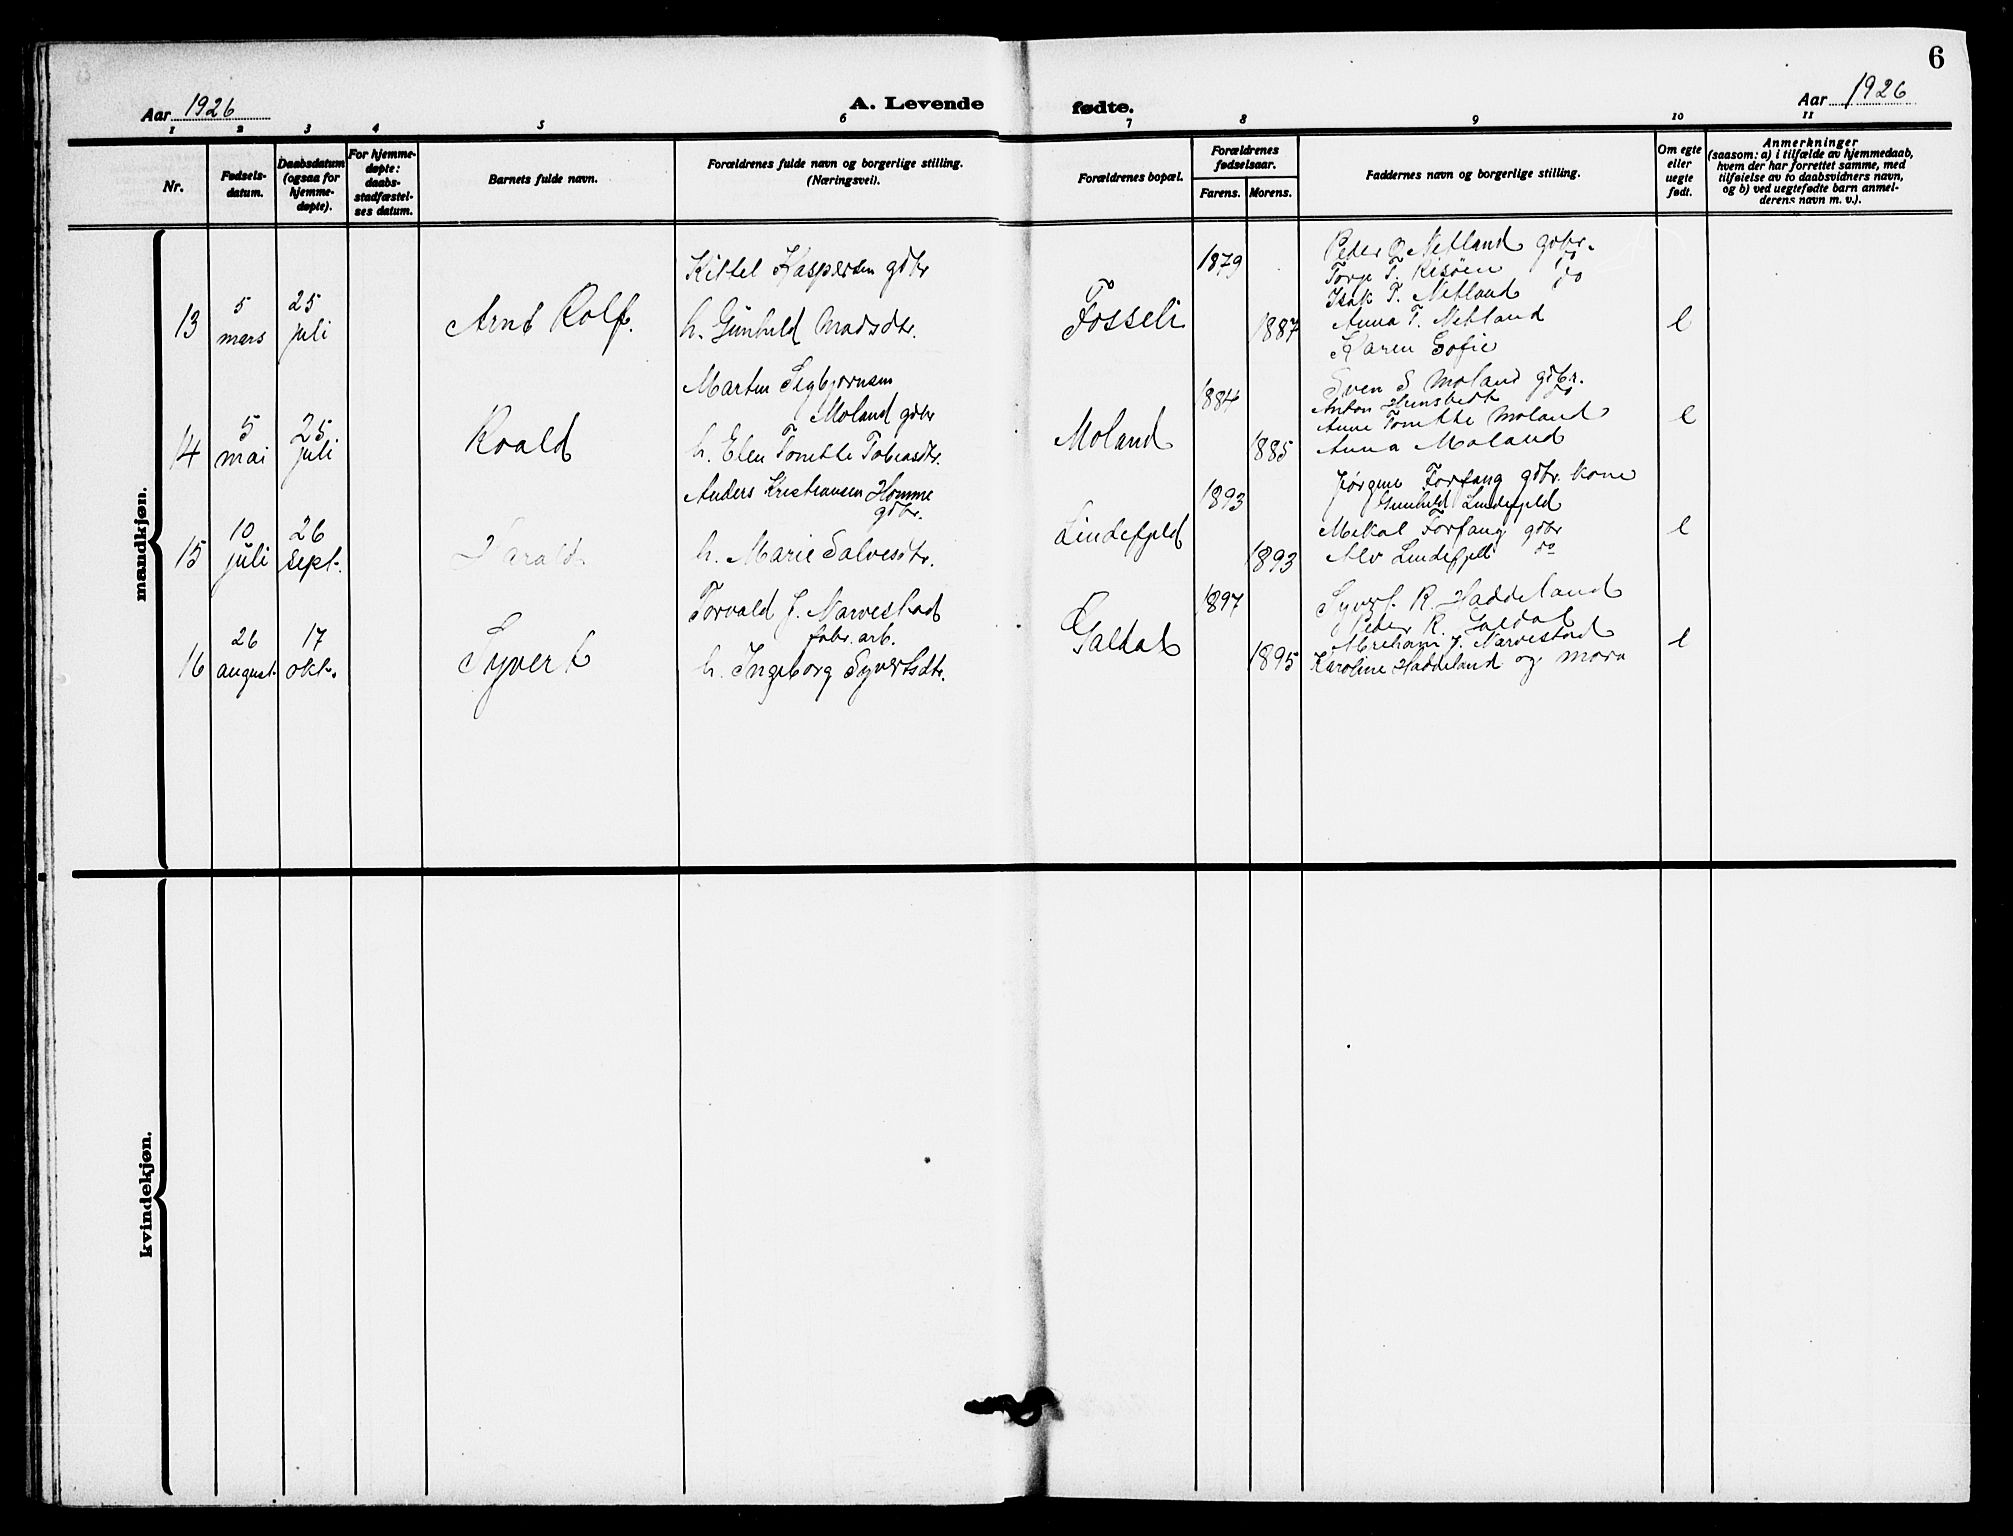 6
Aar 1926
A. Levende fødte.
Aar 1926
1 2 3 4 5 6 7 8 9 10 11
Nr.
Fødsels-
datum.
Daabsdatum
(ogsaa for
hjemme-
døpte).
For hjemme-
døpte:
daabs-
stadfæstel-
ses datum.
Barnets fulde navn.
Forældrenes fulde navn og borgerlige stilling.
(Næringsvei).
Forældrenes bopæl.
Forældrenes
fødselsaar.
Farens. Morens.
Faddernes navn og borgerlige stilling.
Om egte
eller
uegte
født.
Anmerkninger
(saasom: a) i tilfælde av hjemmedaab,
hvem der har forrettet samme, med
tilføielse av to daabsvidners navn,
og b) ved uegtefødte barn anmel-
derens navn m. v.).
mandkjøn.
13
5
mars
25
juli
Arnt Rolf.
Kittel Kaspersen gdbr
h. Gunhild Madsdtr.
Fosseli
1879
1887
Peder P. Netland gdbr.
Torje T. Risöen do
Isak P. Netland do
Anna T. Netland
Karen Sofie
e
14
5
mai
25
juli
Roald
Marten Sigbjørnsen
Moland gdbr
h. Elen Tomette Tobiasdtr.
Moland
1884
1885
Sven S Moland gdbr.
Anton do
Anne Tomette Moland
Anna Moland
e
15
10
juli
26
sept.
Harald
Anders Kristiansen Homme
gdbr.
h. Marie Salvesdtr.
Lindefjeld
1893
1893
Jørgine Forfang gdbr. kone
Gunhild Lindefjeld
Mekal Forfang gdbr
Alv Lindefjell do
e
16
26
august.
17
okt.
Syvert
Torvald J. Narvestad
fabr. arb.
h. Ingeborg Syvertsdtr.
Galdal
1897
1895
Syvert R. Haddeland
Peder R. Galdal
Abreham J. Narvestad
Karoline Haddeland og mora
e
kvindekjøn.